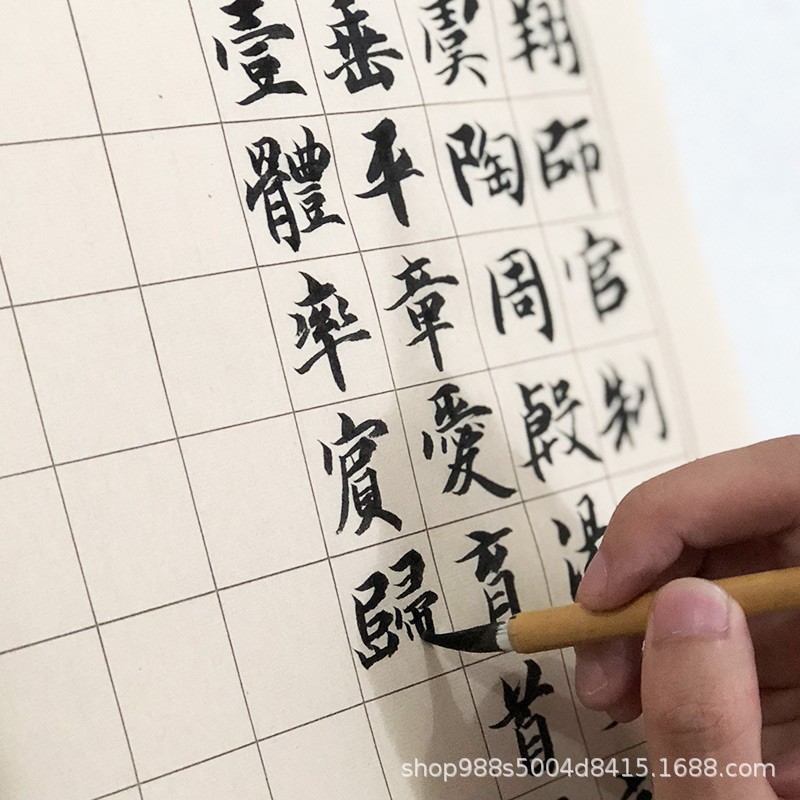 翔師官制
虞陶周殷
垂平章愛育首
壹體率賓歸
shop988s5004d8415.1688.com